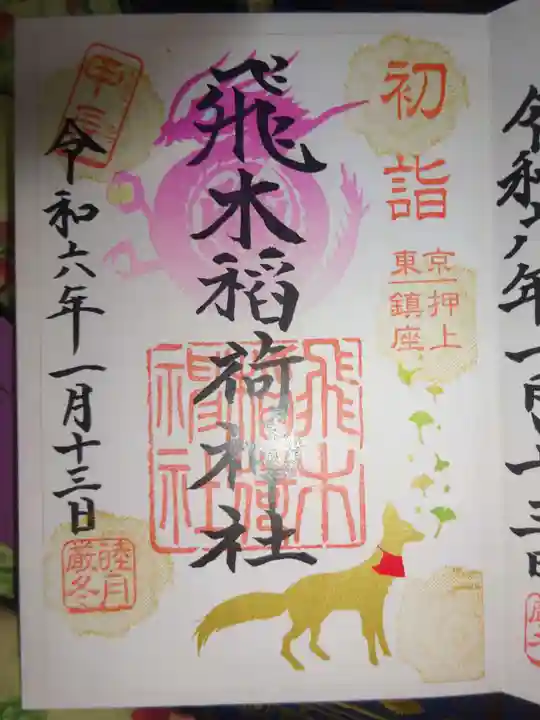 初詣
東京押上鎮座
飛木稲荷神社
飛木稲荷神社
甲辰
令和六年一月十三日
睦月
厳冬
令和六年一月十三日